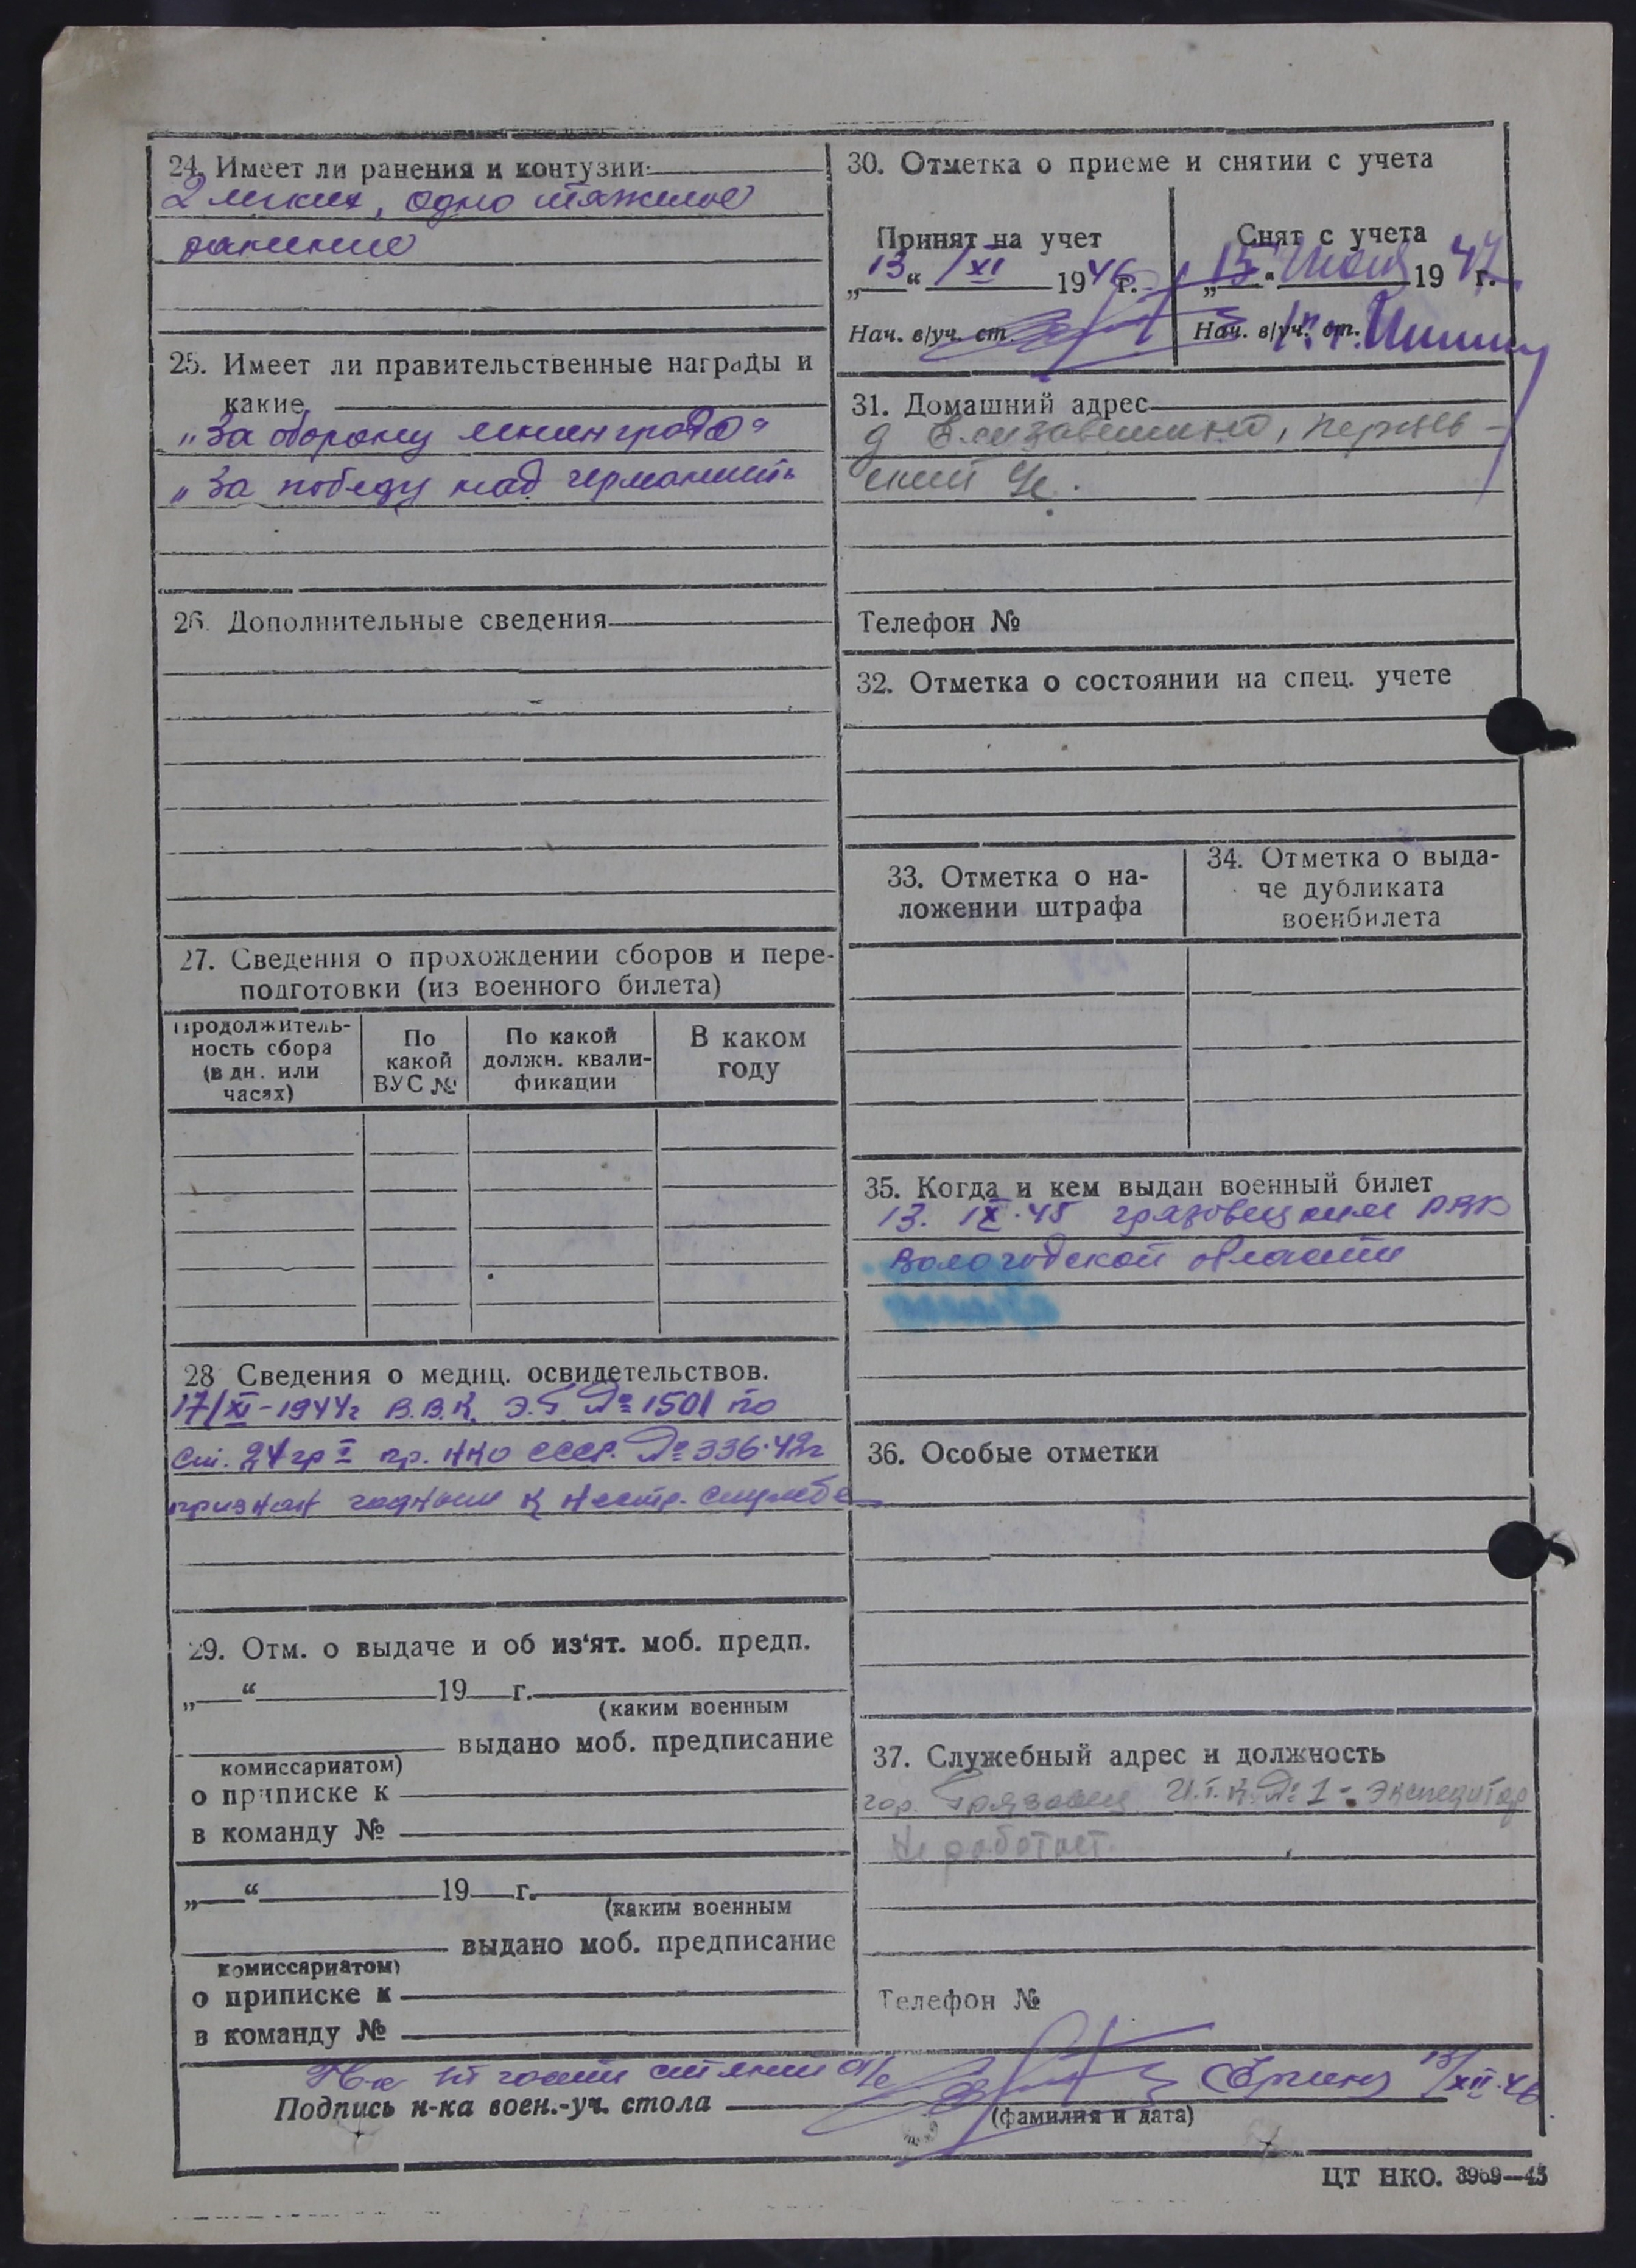 24. Имеет ли ранения и контузии
2 легких, одно тяжелое
ранение
25. Имеет ли правительственные награды и
какие
„За оборону Ленинграда“
„За победу над германией“
26. Дополнительные сведения
27. Сведения о прохождении сборов и пере-
подготовки (из военного билета)
Продолжитель-
ность сбора
(в дн. или
часах)
По
какой
ВУС №
По какой
должн. квали-
фикации
В каком
году
28 Сведения о медиц. освидетельствов.
17/XI-1944г В.В.К. Э.Г. № 1501 по
ст. 24 гр I пр. НКО СССР. № 336-42г
признан годным к нестр. службе
29. Отм. о выдаче и об из'ят. моб. предп.
„ “ 19 г.
(каким военным
выдано моб. предписание
комиссариатом)
о приписке к
в команду №
„ “ 19 г.
(каким военным
выдано моб. предписание
комиссариатом)
о приписке к
в команду №
30. Отметка о приеме и снятии с учета
Принят на учет
„13“ /XI 1946г.
Нач. в/уч. ст.
Снят с учета
„15“ 1947 г.
Нач. в/уч. ст.
31. Домашний адрес
д
ский
Телефон №
32. Отметка о состоянии на спец. учете
33. Отметка о на-
ложении штрафа
34. Отметка о выда-
че дубликата
военбилета
35. Когда и кем выдан военный билет
13. IX.45 грязовецким РВК
Вологодской области
36. Особые отметки
37. Служебный адрес и должность
гор. Грязовец И.Т.К. № 1 - экспедитор
Не работает.
Телефон №
/XII.46
Подпись н-ка воен.-уч. стола
(фамилия и дата)
ЦТ НКО. 3969—45